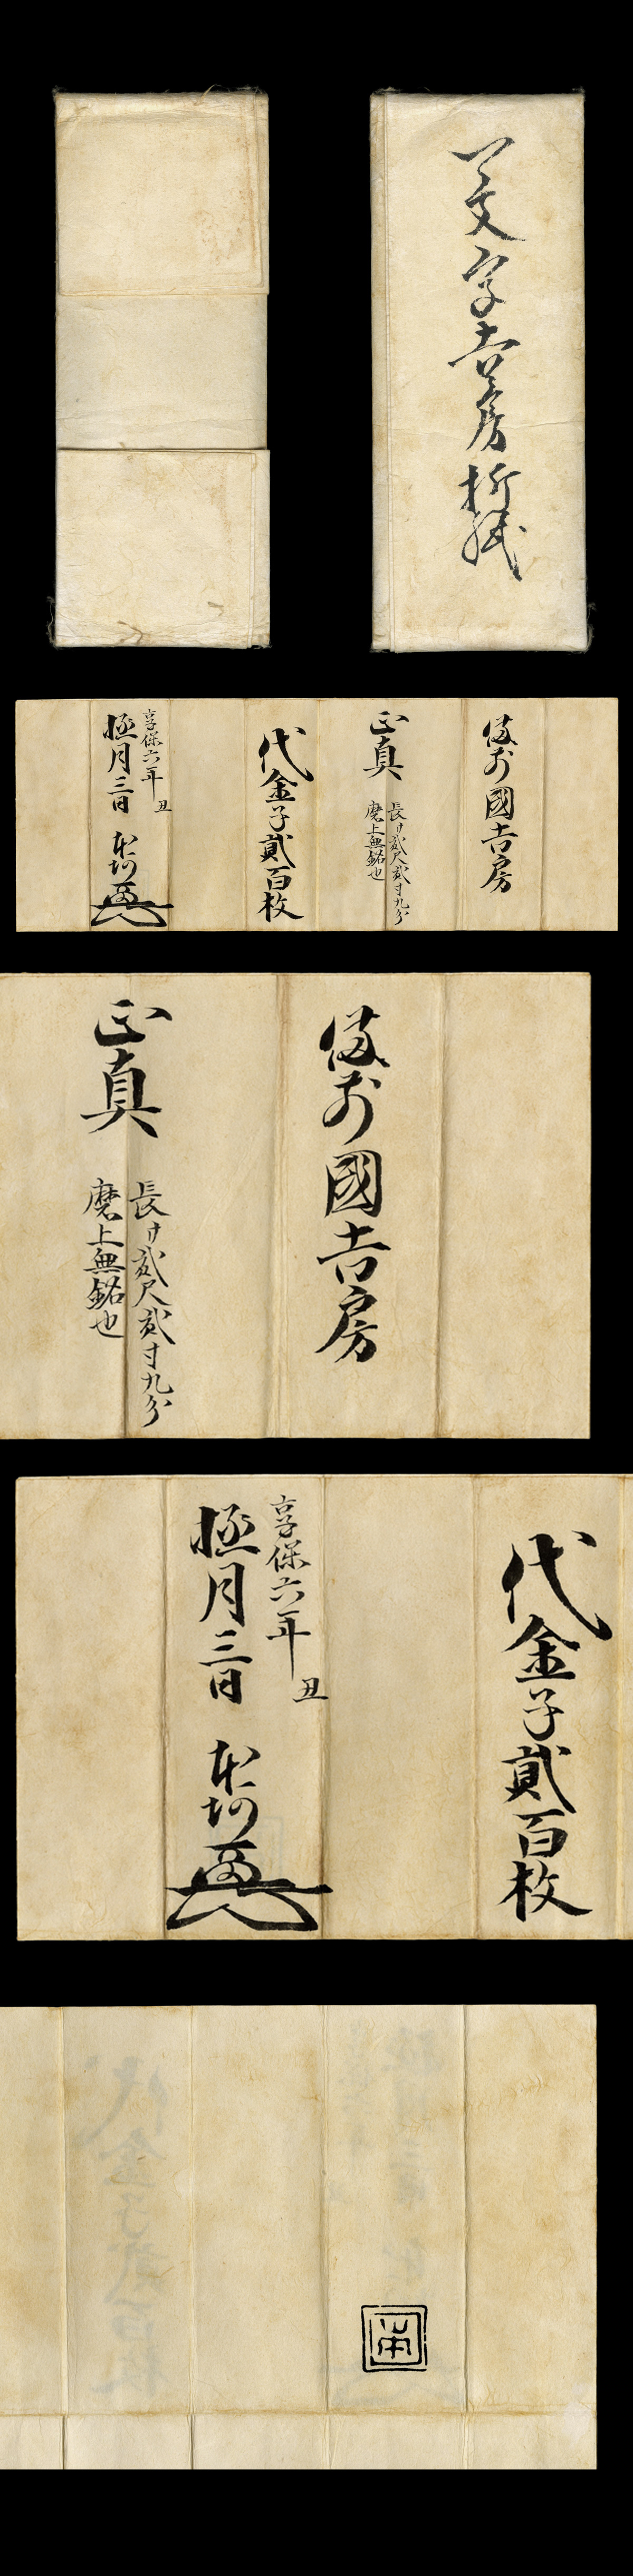 一文字吉房折紙
備前國吉房
正真
長サ貳尺貳寸九分
磨上無銘也
代金子貳百枚
享保六年
丑
極月三日
本阿
備前國吉房
正真
長サ貳尺貳寸九分
磨上無銘也
代金子貳百枚
享保六年
丑
極月三日
本阿
本